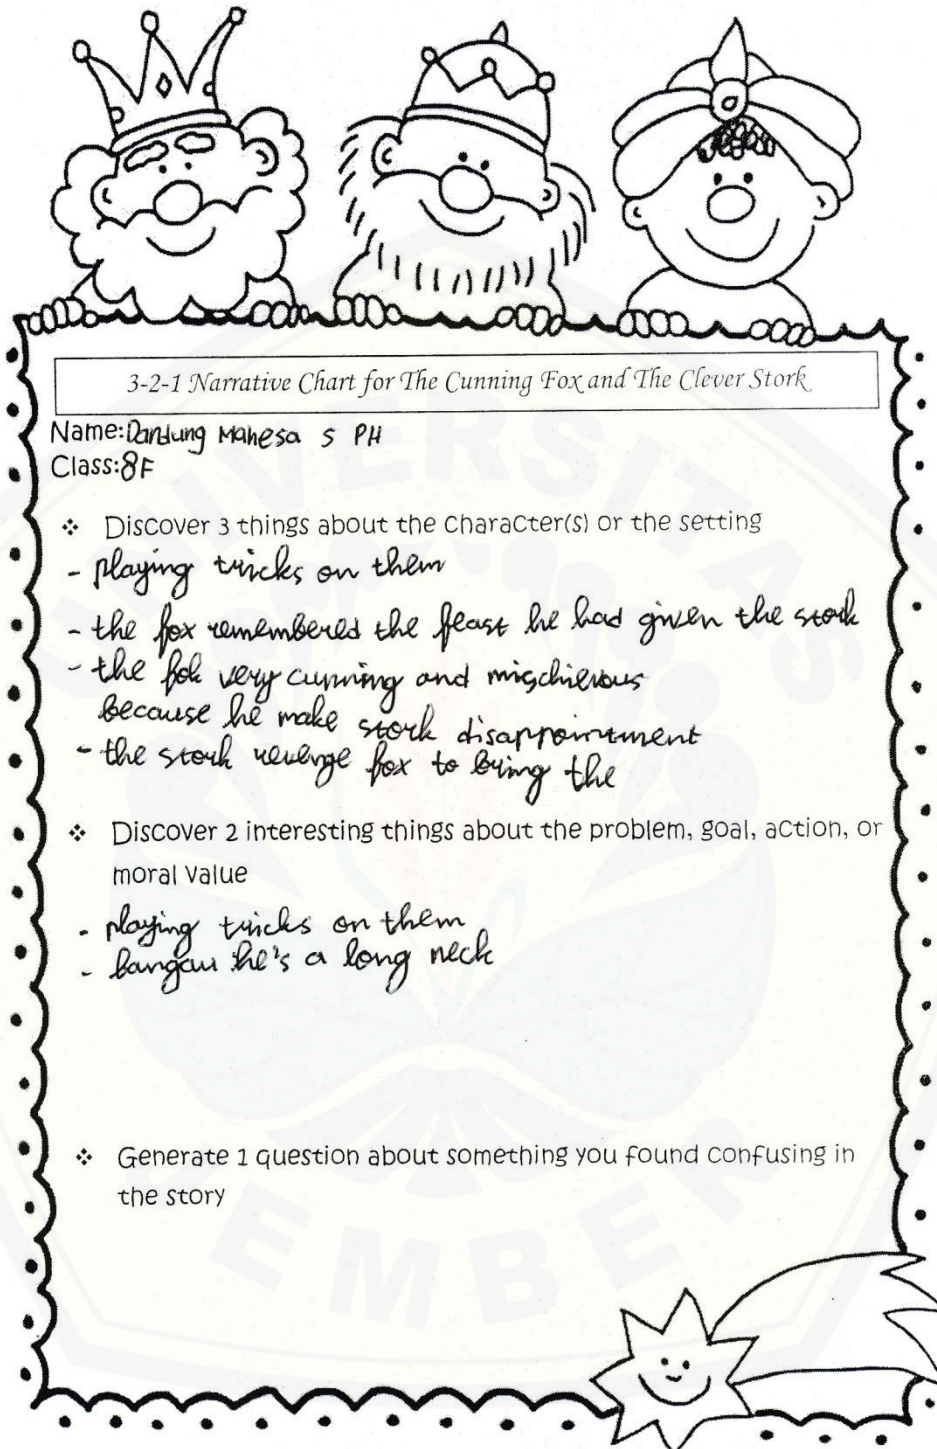 3-2-1 Narrative Chart for The Cunning Fox and The Clever Stork
Name: Dandung Mahesa S PH
Class: 8F
❖ Discover 3 things about the character(s) or the setting
- playing tricks on them
- the fox remembered the feast he had given the stork
- the fok very cunning and mischievous
because he make stork disappointment
- the stork revenge fox to bring the
❖ Discover 2 interesting things about the problem, goal, action, or
moral value
- playing tricks on them
- bangau he's a long neck
❖ Generate 1 question about something you found confusing in
the story
UNIVERSITAS
JEMBER